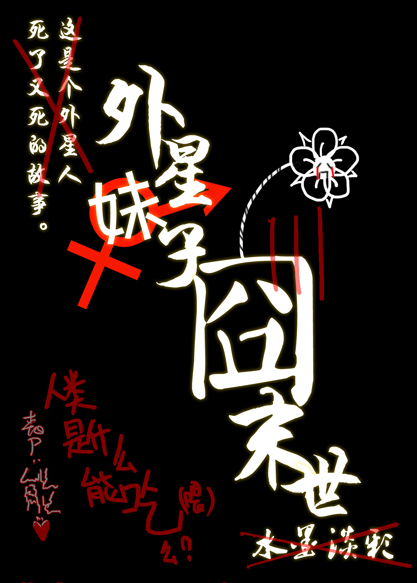 这是个外星人
死了又死的故事。
外星妹子囧末世
人类
是什么
能吃
(喂)
么?
水墨淡彩